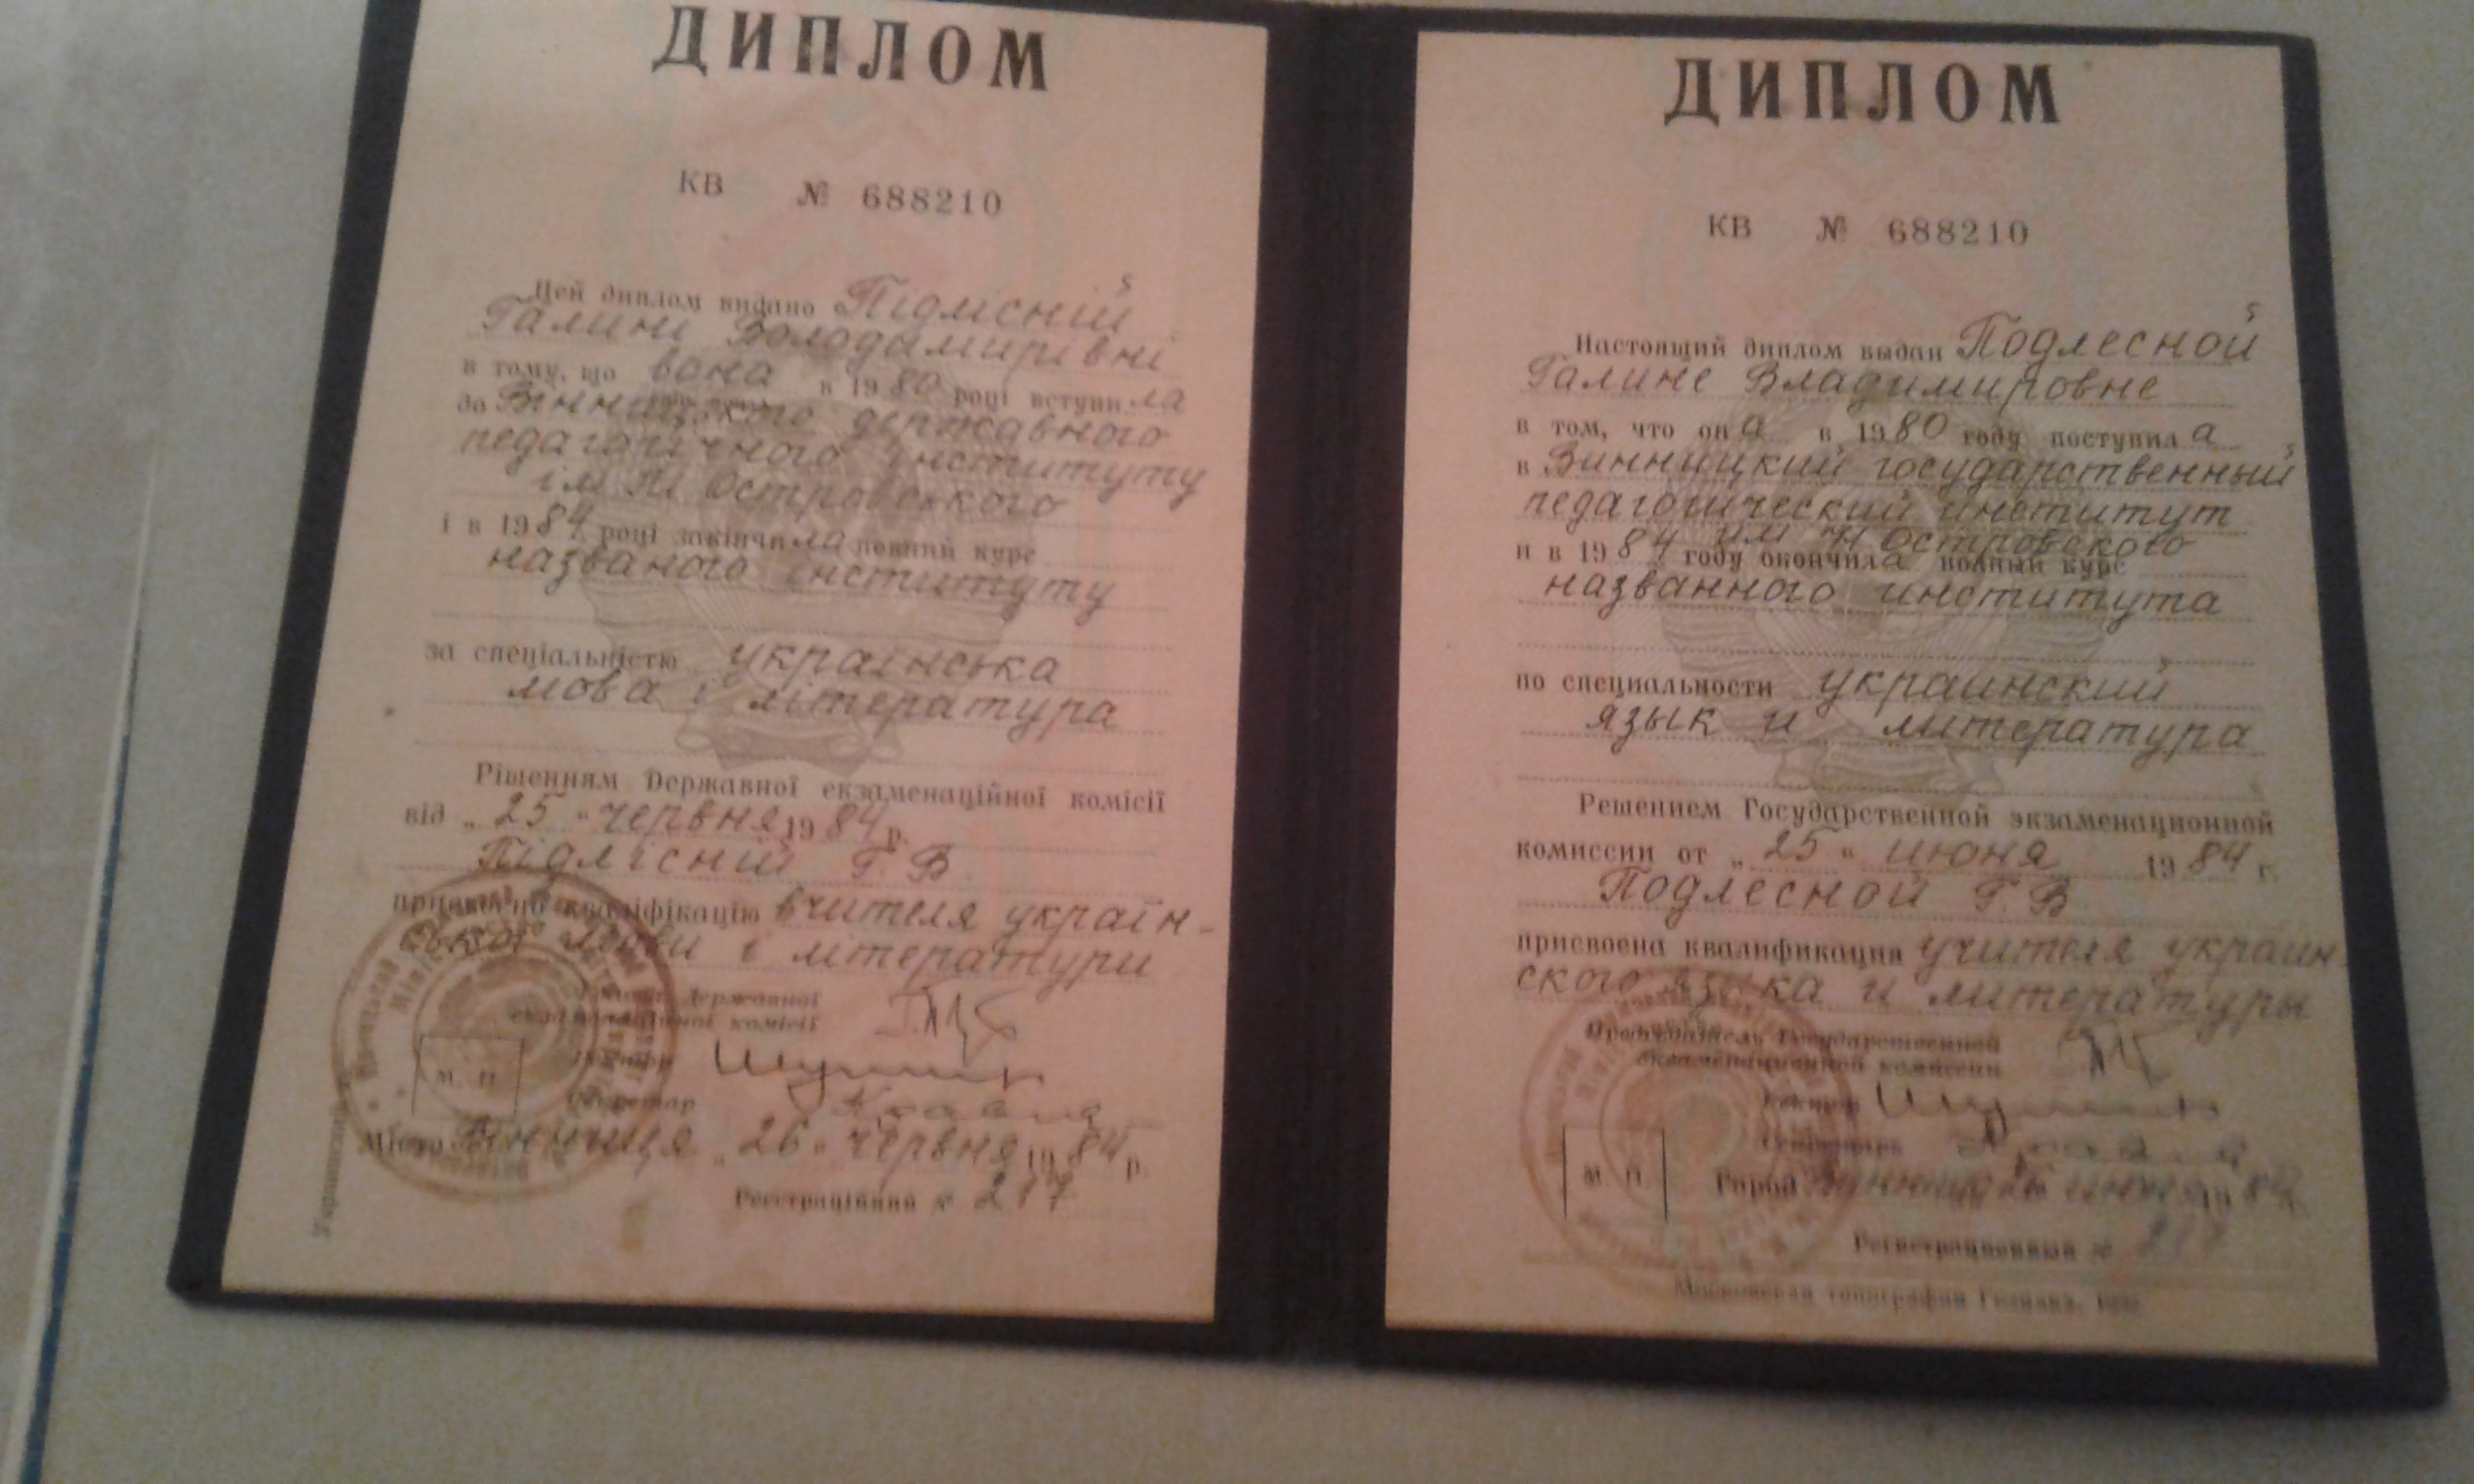 ДИПЛОМ
КВ № 688210
Цей диплом видано Підлісній
Галині Володимирівні
в тому, що вона в 1980 році вступила
до Вінницького державного
педагогічного інституту
ім Островського
і в 1984 році закінчила повний курс
названого інституту
за спеціальністю українська
мова і література
Рішенням Державної екзаменаційної комісії
від „25“ червня 1984 р.
Підлісній Г. В.
присвоєно кваліфікацію вчителя україн-
ської мови і літератури
Державної
екзаменаційної комісії
Ректор
Секретар
М. П.
Місто Вінниця „26“ червня 1984 р.
Реєстраційний № 217
Український
ДИПЛОМ
КВ № 688210
Настоящий диплом выдан Подлесной
Галине Владимировне
в том, что она в 1980 году поступила
в Винницкий государственный
педагогический институт
им Н Островского
и в 1984 году окончила полный курс
названного института
по специальности украинский
язык и литература
Решением Государственной экзаменационной
комиссии от „25“ июня 1984 г.
Подлесной Г. В
присвоена квалификация учителя украин-
ского языка и литературы
Председатель Государственной
экзаменационной комиссии
Ректор
Секретарь
М. П.
Город Винница 26 июня 1984
Регистрационный № 217
Московская типография Гознака.